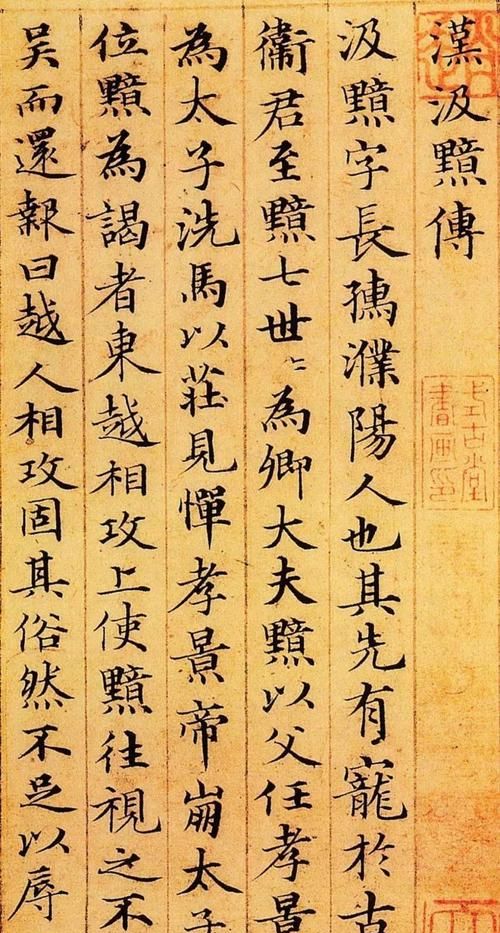 漢汲黯傳
汲黯字長孺濮陽人也其先有寵於古
衞君至黯七世〻為卿大夫黯以父任孝景
為太子洗馬以莊見憚孝景帝崩太子
位黯為謁者東越相攻上使黯往視之不
吳而還報曰越人相攻固其俗然不足以辱